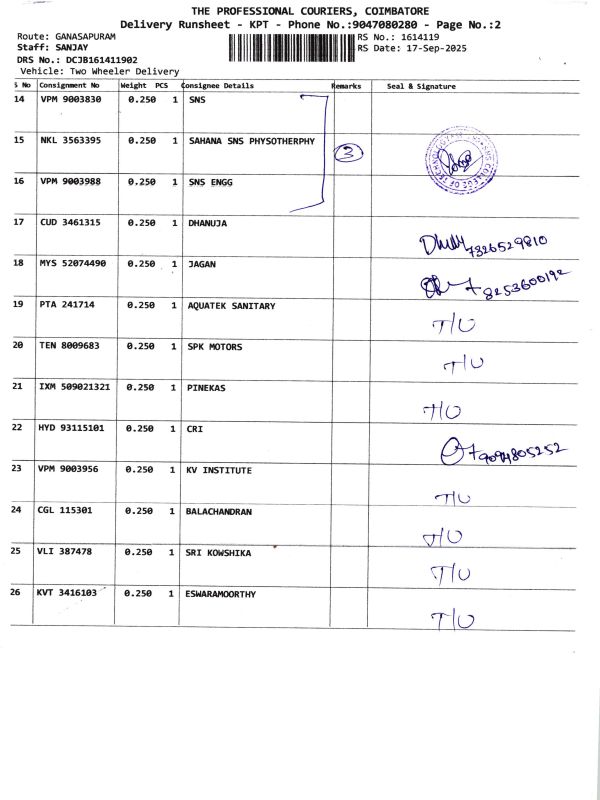 THE PROFESSIONAL COURIERS, COIMBATORE
Delivery Runsheet - KPT - Phone No.:9047080280 - Page No.:2
Route: GANASAPURAM RS No.: 1614119
Staff: SANJAY RS Date: 17-Sep-2025
DRS No.: DCJB161411902
Vehicle: Two Wheeler Delivery
S No Consignment No Weight PCS Consignee Details Remarks Seal & Signature
14 VPM 9003830 0.250 1 SNS
15 NKL 3563395 0.250 1 SAHANA SNS PHYSOTHERPHY 3
16 VPM 9003988 0.250 1 SNS ENGG
17 CUD 3461315 0.250 1 DHANUJA 7326529810
18 MYS 52074490 0.250 1 JAGAN 8253600192
19 PTA 241714 0.250 1 AQUATEK SANITARY T/U
20 TEN 8009683 0.250 1 SPK MOTORS T/U
21 IXM 509021321 0.250 1 PINEKAS T/U
22 HYD 93115101 0.250 1 CRI 9094805252
23 VPM 9003956 0.250 1 KV INSTITUTE T/U
24 CGL 115301 0.250 1 BALACHANDRAN T/U
25 VLI 387478 0.250 1 SRI KOWSHIKA T/U
26 KVT 3416103 0.250 1 ESWARAMOORTHY T/U